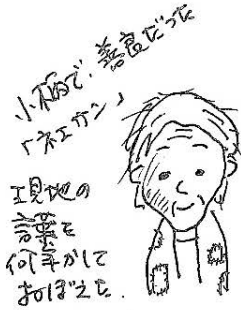 小柄で、善良だった
「ネエサン」
現地の
言葉を
何年かして
おぼえた.